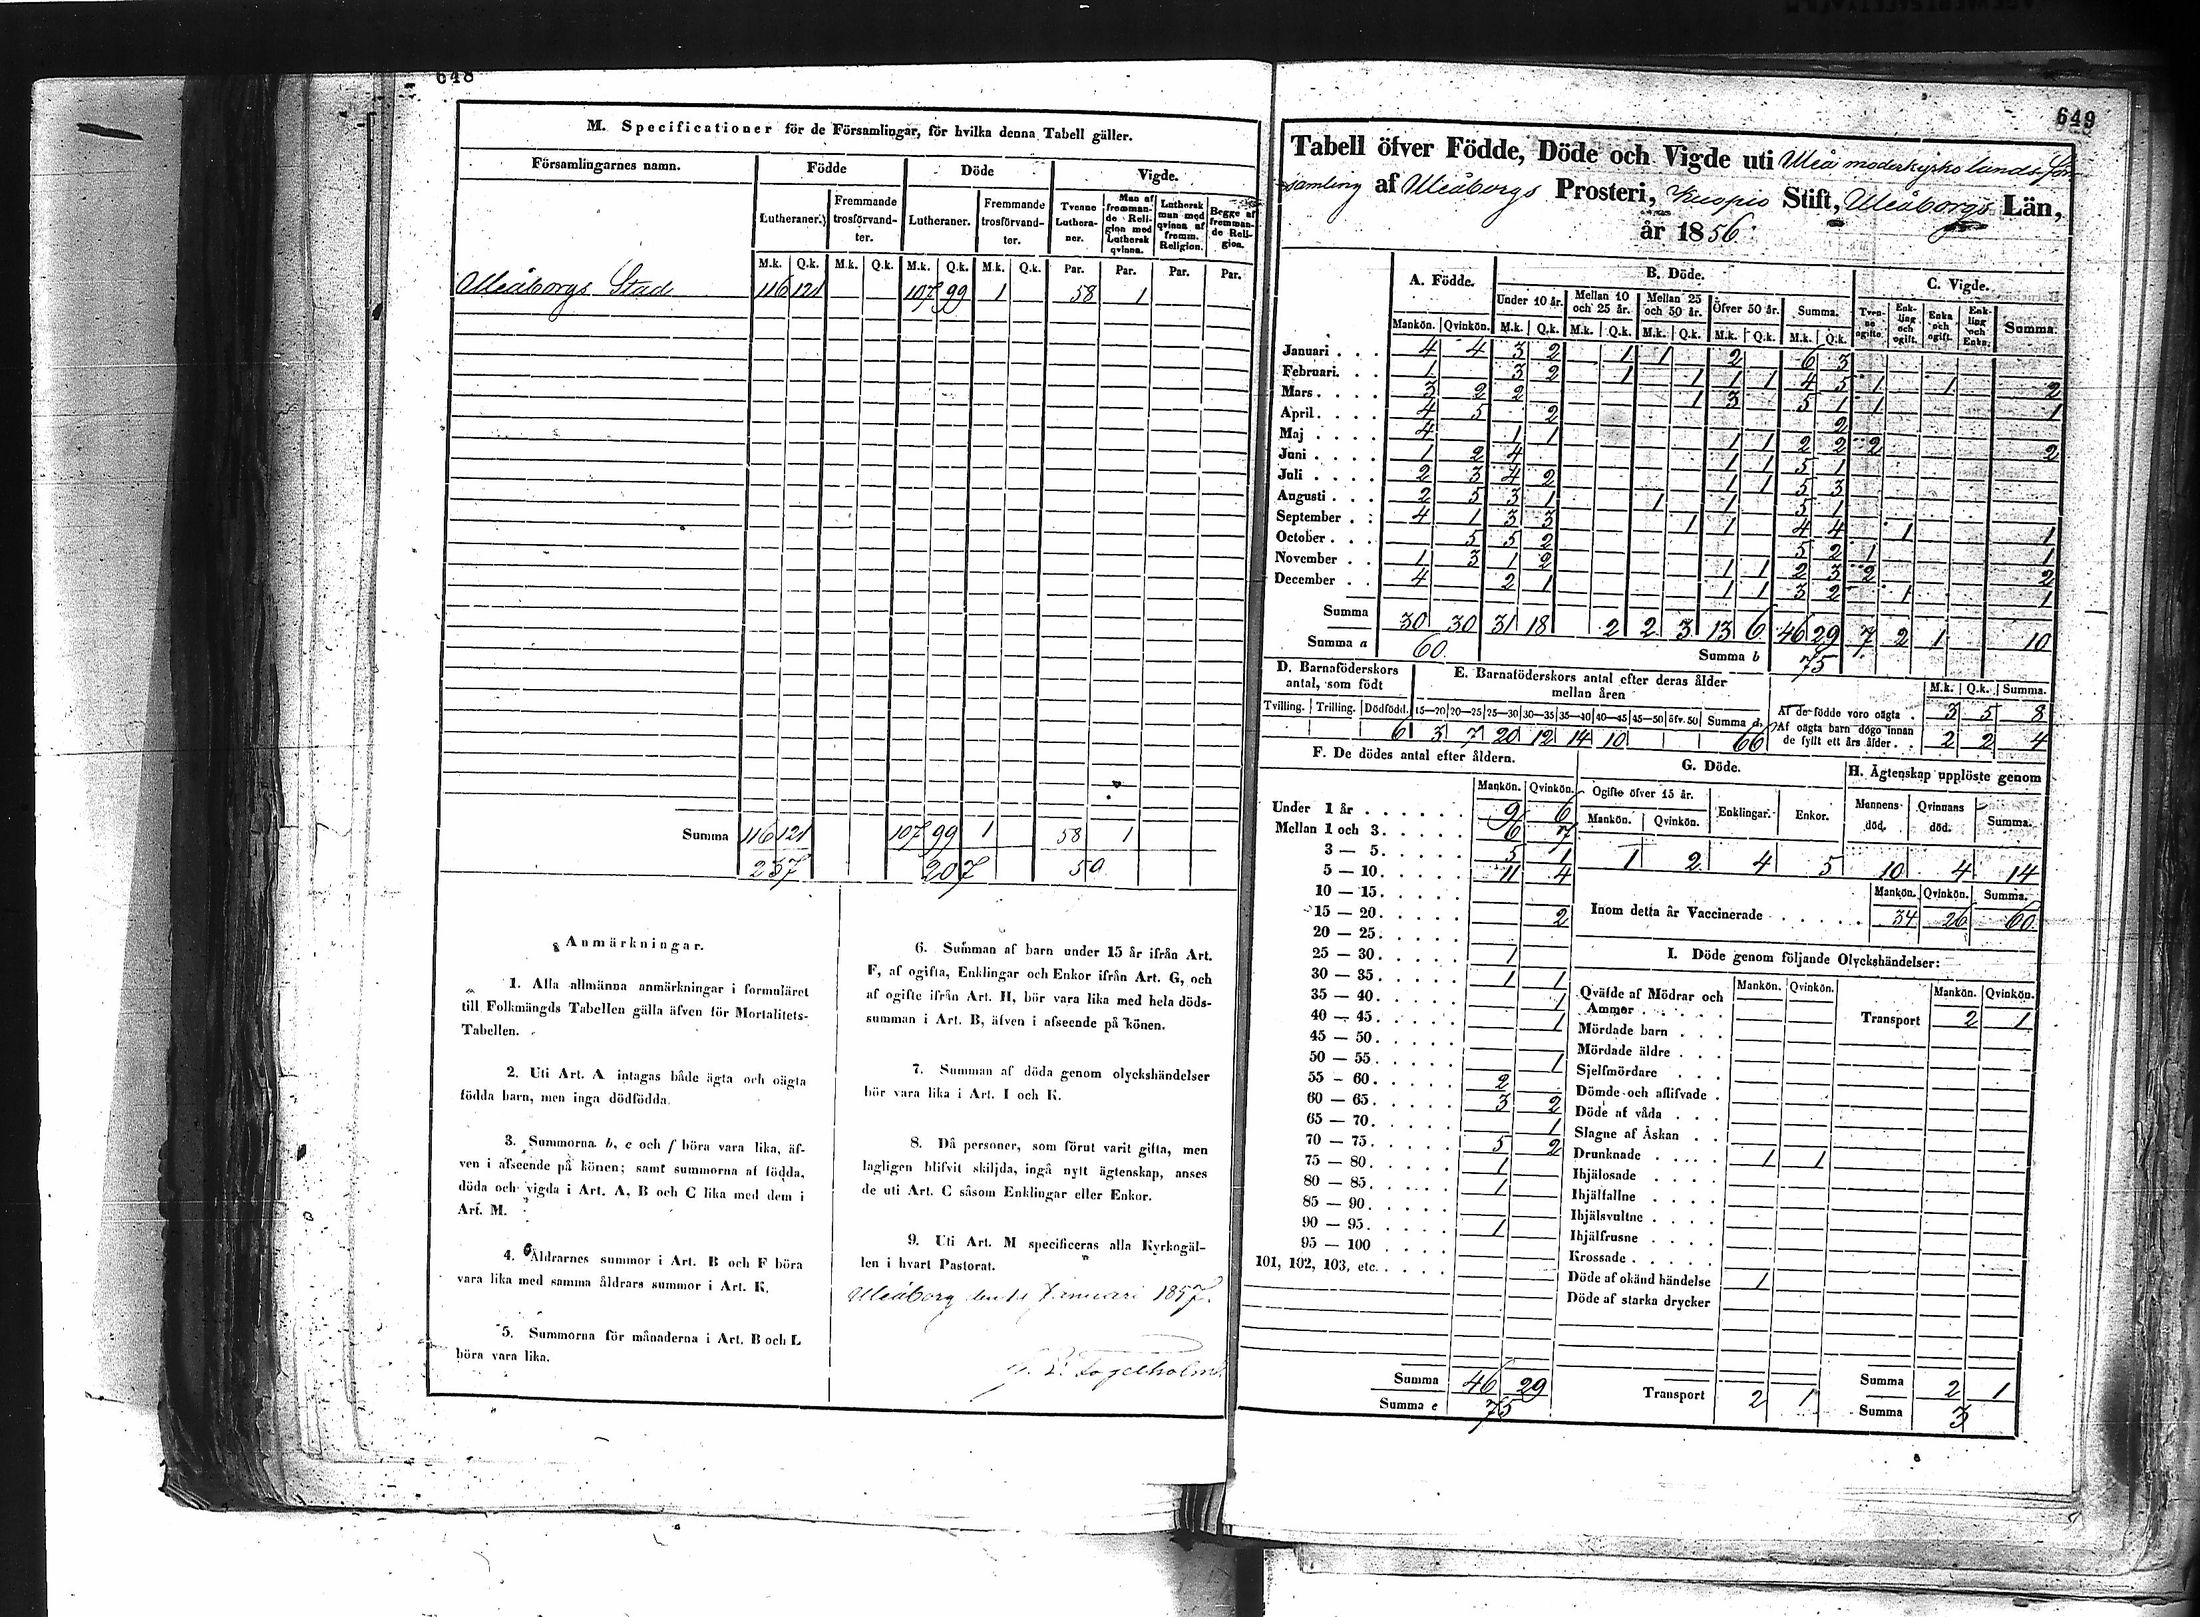 648
M. Specificationer för de Församlingar, för hvilka denna Tabell gäller.
Församlingarnes namn. Födde Döde Vigde.
Lutheraner. Fremmande trosförvandter. Lutheraner. Fremmande trosförvandter. Tvenne Lutheraner. Man af fremmande Religion med Luthersk qvinna. Luthersk man med qvinna af fremm. Religion. Begge af fremmande Religion.
M.k. Q.k. M.k. Q.k. M.k. Q.k. M.k. Q.k. Par. Par. Par. Par.
Uleåborgs Stad 116 121 107 99 1 58 1
Summa 116 121 107 99 1 58 1
237 207 59
Anmärkningar.
1. Alla allmänna anmärkningar i formuläret
till Folkmängds Tabellen gälla äfven för Mortalitets-
Tabellen.
2. Uti Art. A intagas både ägta och oägta
födda barn, men inga dödfödda.
3. Summorna b, e och f böra vara lika, äf-
ven i afseende på könen; samt summorna af födda,
döda och vigda i Art. A, B och C lika med dem i
Art. M.
4. Åldrarnes summor i Art. B och F böra
vara lika med samma åldrars summor i Art. K.
5. Summorna för månaderna i Art. B och L
böra vara lika.
6. Summan af barn under 15 år ifrån Art.
F, af ogifta, Enklingar och Enkor ifrån Art. G, och
af ogifte ifrån Art. H, bör vara lika med hela döds-
summan i Art. B, äfven i afseende på könen.
7. Summan af döda genom olyckshändelser
bör vara lika i Art. I och K.
8. Då personer, som förut varit gifta, men
lagligen blifvit skiljda, ingå nytt ägtenskap, anses
de uti Art. C såsom Enklingar eller Enkor.
9. Uti Art. M specificeras alla Kyrkogäl-
len i hvart Pastorat.
Uleåborg den Januari 1857.
Fogelholm
649
Tabell öfver Födde, Döde och Vigde uti Uleå moderkyrko lands för-
samling af Uleåborgs Prosteri, Kuopio Stift, Uleåborgs Län,
år 1856.
A. Födde. B. Döde. C. Vigde.
Under 10 år. Mellan 10 och 25 år. Mellan 25 och 50 år. Öfver 50 år. Summa. Tvenne ogifte. Enkling och ogift. Enka och ogift. Enkling och Enka. Summa.
Mankön. Qvinkön. M.k. Q.k. M.k. Q.k. M.k. Q.k. M.k. Q.k. M.k. Q.k.
Januari 4 4 3 2 1 1 2 6 3
Februari. 1 3 2 1 1 1 1 4 5 1 1 2
Mars 3 2 2 1 3 5 1 1 1
April 4 5 2 2
Maj 4 1 1 1 1 2 2 2 2
Juni 1 2 4 1 1 5 1
Juli 2 3 4 2 1 1 5 3
Augusti 2 5 3 1 1 1 5 1
September 4 1 3 3 1 1 4 4 1 1
October 5 5 2 5 2 1 1
November 1 3 1 2 1 1 2 3 2 2
December 4 2 1 1 1 3 2 1 1
Summa 30 30 31 18 2 2 3 13 6 46 29 7 2 1 10
Summa a 60 Summa b 75
D. Barnaföderskors antal, som födt
Tvilling. Trilling. Dödfödd.
6
E. Barnaföderskors antal efter deras ålder mellan åren
15—20 20—25 25—30 30—35 35—40 40—45 45—50 öfv. 50 Summa d.
3 7 20 12 14 10 66
M.k. Q.k. Summa.
Af de födde voro oägta 3 5 8
Af oägta barn dögo innan
de fyllt ett års ålder 2 2 4
F. De dödes antal efter åldern.
Mankön. Qvinkön.
Under 1 år 9 6
Mellan 1 och 3 6 7
3 — 5 5 1
5 — 10 11 4
10 — 15
15 — 20 2
20 — 25
25 — 30 1
30 — 35 1 1
35 — 40 1
40 — 45 1
45 — 50
50 — 55 1
55 — 60 2
60 — 65 3 2
65 — 70 1
70 — 75 5 2
75 — 80 1
80 — 85 1
85 — 90
90 — 95 1
95 — 100
101, 102, 103, etc.
Summa 46 29
Summa e 75
G. Döde.
Ogifte öfver 15 år. Enklingar. Enkor.
Mankön. Qvinkön.
1 2 4 5
H. Ägtenskap upplöste genom
Mannens död. Qvinnans död. Summa.
10 4 14
Mankön. Qvinkön. Summa.
Inom detta år Vaccinerade 34 26 60
I. Döde genom följande Olyckshändelser:
Mankön. Qvinkön. Mankön. Qvinkön.
Qväfde af Mödrar och
Ammor
Transport 2 1
Mördade barn
Mördade äldre
Sjelfmördare
Dömde och aflifvade
Döde af våda
Slagne af Åskan
Drunknade 1 1
Ihjälosade
Ihjälfallne
Ihjälsvultne
Ihjälfrusne
Krossade
Döde af okänd händelse 1
Döde af starka drycker
Transport 2 1
Summa 2 1
Summa 3